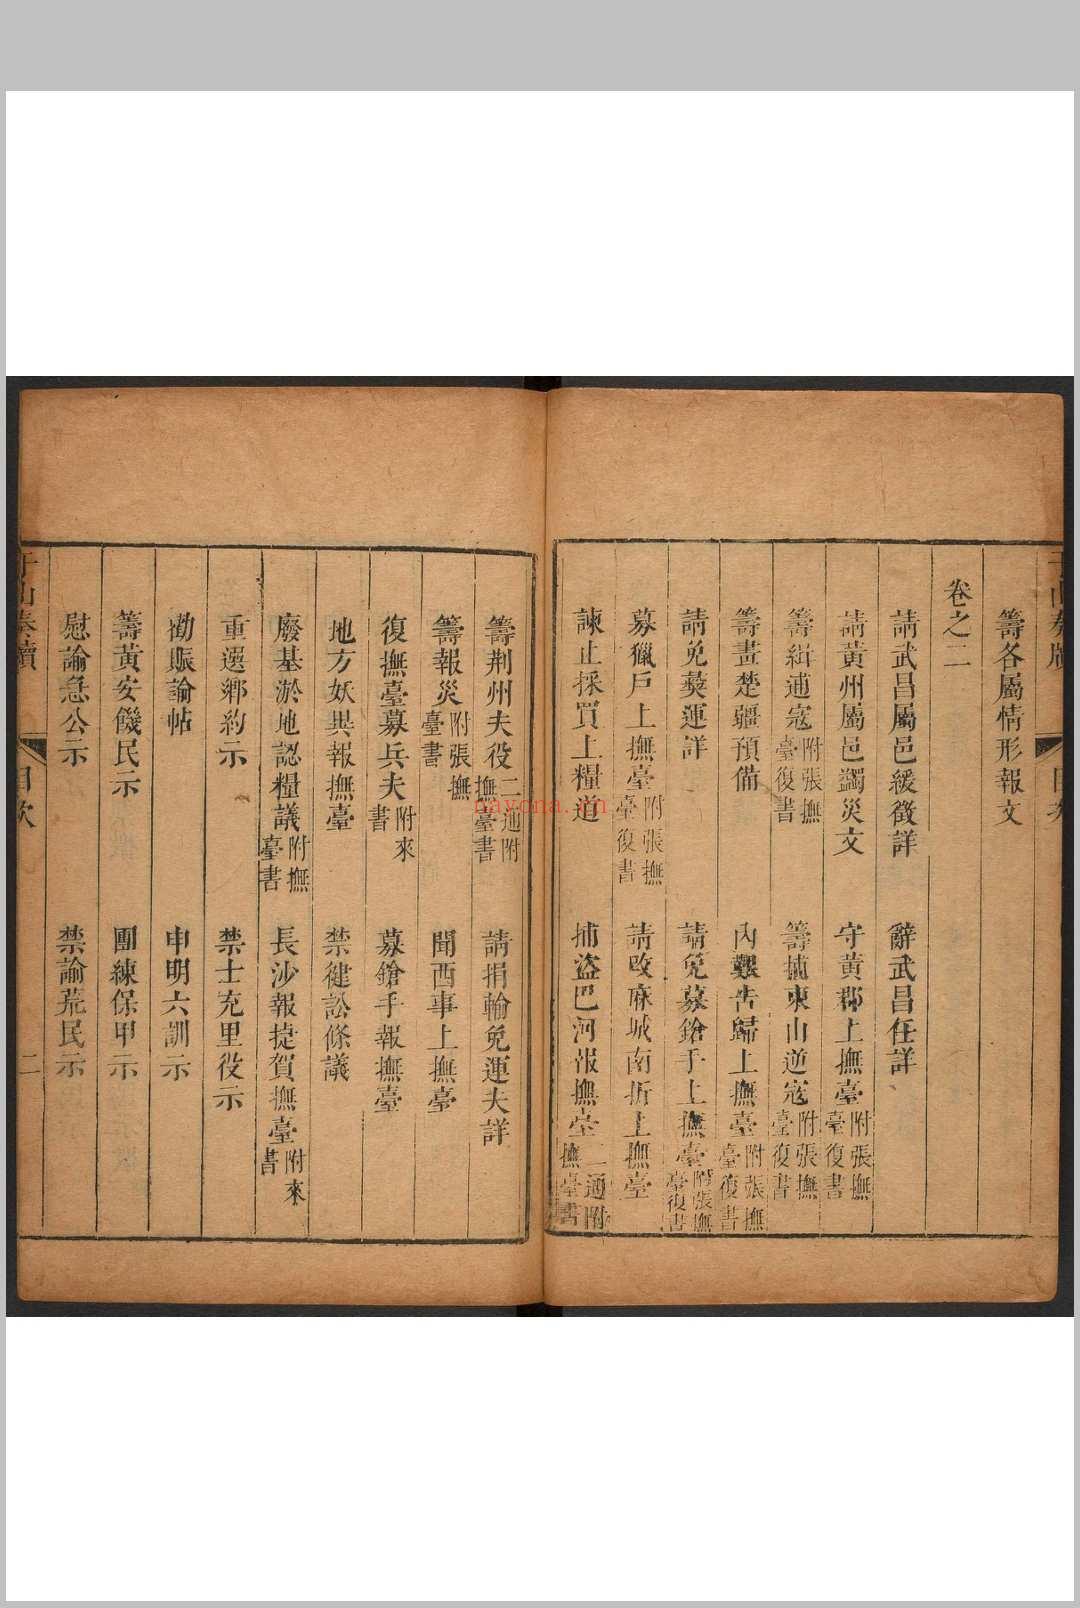 籌各屬情形報文
卷之二
請武昌屬邑緩徵詳 辭武昌任詳
請黃州屬邑蠲災文 守黃郡上撫臺附張撫臺復書
籌緝逋寇附張撫臺復書 籌捕東山逆寇附張撫臺復書
籌畫楚疆預備 內艱告歸上撫臺附張撫臺復書
請免葵運詳 請免募鎗手上撫臺附張撫臺復書
募獵戶上撫臺附張撫臺復書 請改麻城南折上撫臺
諫止採買上糧道 捕盜巴河報撫臺二通附撫臺書
籌荆州夫役二通附撫臺書 請捐輸免運夫詳
籌報災附張撫臺書 聞酉事上撫臺
復撫臺募兵夫附來書 募鎗手報撫臺
地方妖異報撫臺 禁健訟條議
廢基淤地認糧議附撫臺書 長沙報捷賀撫臺附來書
重選鄉約示 禁士充里役示
勸賑諭帖 申明六訓示
籌黃安饑民示 團練保甲示
慰諭急公示 禁諭荒民示
于山奏牘 目次 二
nayona.cn